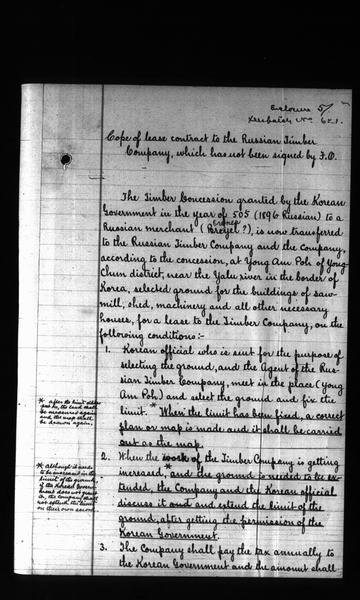 Enclosure 5/
Despatch No. 651.
Copy of lease contract to the Russian Timber
Company, which has not been signed by F.O.
The Timber Concession granted by the Korean
Government in the year of 505 (1896 Russian) to a
Russian merchant (Breyel?), is now transferred
to the Russian Timber Company and the Company,
according to the concession, at Yong Am Poh of Yong
Chun district, near the Yalu river in the border of
Korea, selected ground for the buildings of saw-
mill, shed, machinery and all other necessary
houses, for a lease to the Timber Company, on the
following conditions:-
1. Korean official who is sent for the purpose of
selecting the ground, and the Agent of the Rus-
sian Timber Company, meet in the place (Yong
Am Poh) and select the ground and fix the
limit. * When the limit has been fixed, a correct
plan or map is made and it shall be carried
out as the map.
* after the limit
be, the land shall
be measured again
and the map shall
be drawn again.
2. When the work of the Timber Company is getting
increased, * and the ground is needed to be ex-
tended, the Company and the Korean official
discuss it and extend the limit of the
ground, after getting the permission of the
Korean Government.
* although it needs
to be increased in the
limit of the ground,
if the Korean Govern-
ment does not grant
it, the Company shall
not extend the limit
on their own accord.
3. The Company shall pay the tax annually to
the Korean Government and the amount shall